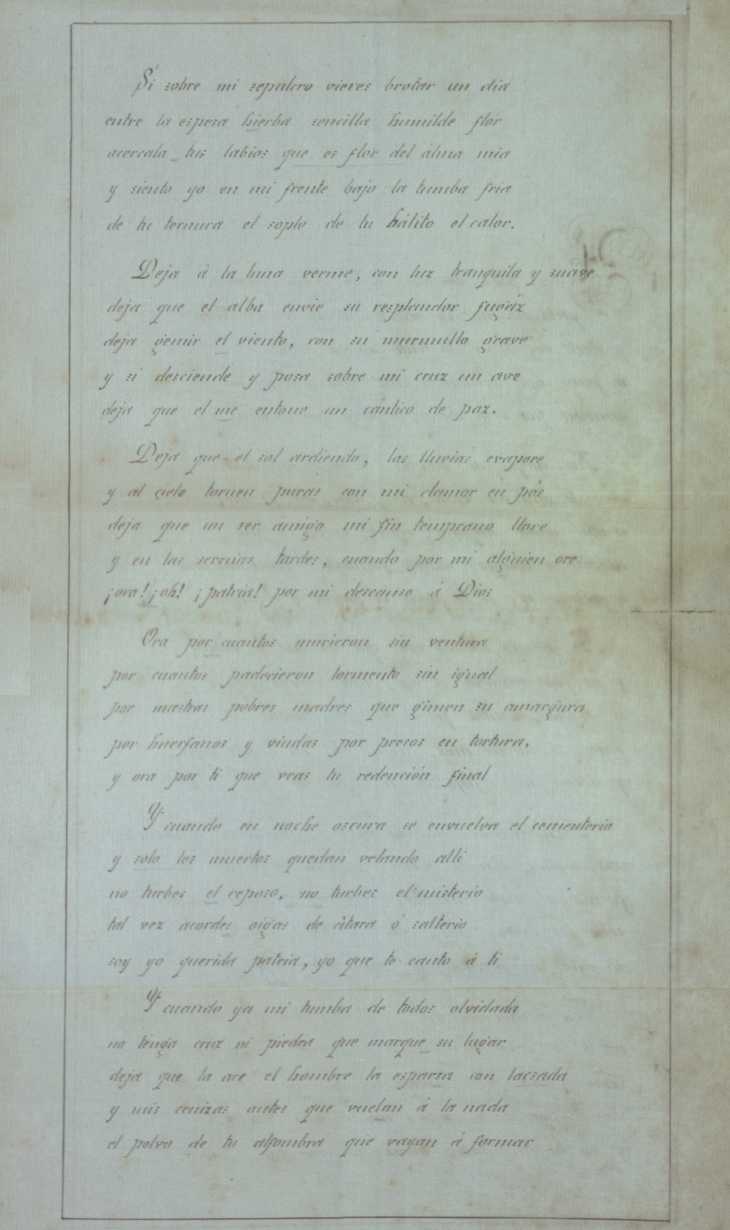 Si sobre mi sepulcro vieres brotar un dia
entre la espesa hierba sencilla humilde flor
acercala tus labios que es flor del alma mia
y siento yo en mi frente bajo la tumba fria
de tu ternura el soplo de tu hálito el calor.
Deja á la luna verme, con luz tranquila y suave
deja que el alba envie su resplandor fugáz
deja gemir el viento, con su murmullo grave
y si desciende y posa sobre mi cruz un ave
deja que el me entone un cántico de paz.
Deja que el sol ardiendo, las lluvias evapore
y al cielo tornen puras con mi clamor en pós
deja que un ser amigo mi fin temprano llore
y en las serenas tardes, cuando por mi alguien ore
¡ora! ¡oh! ¡patria! por mi descanso á Dios
Ora por cuantos murieron sin ventura
por cuantos padecieron tormento sin igual
por nuestras pobres madres que gimen su amargura
por huerfanos y viudas por presos en tortura.
y ora por ti que veas tu redención final
Y cuando en noche oscura se envuelva el cementerio
y solo los muertos quedan velando alli
no turbes el reposo, no turbes el misterio
tal vez acordes oigas de citara ó salterio
soy yo querida patria, yo que te canto á ti
Y cuando ya mi tumba de todos olvidada
no tenga cruz ni piedra que marque su lugar
deja que la are el hombre la esparza con
y mis cenizas antes que vuelan á la nada
el polvo de tu alfombra que vayan á formar